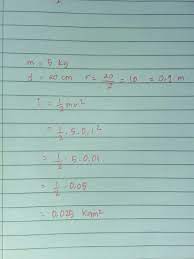 m = 5 kg
d = 20 cm r = 20/2 = 10 = 0,1 m
I = 1/2 mr²
= 1/2 . 5 . 0,1²
= 1/2 . 5 . 0,01
= 1/2 . 0,05
= 0,025 Kgm²